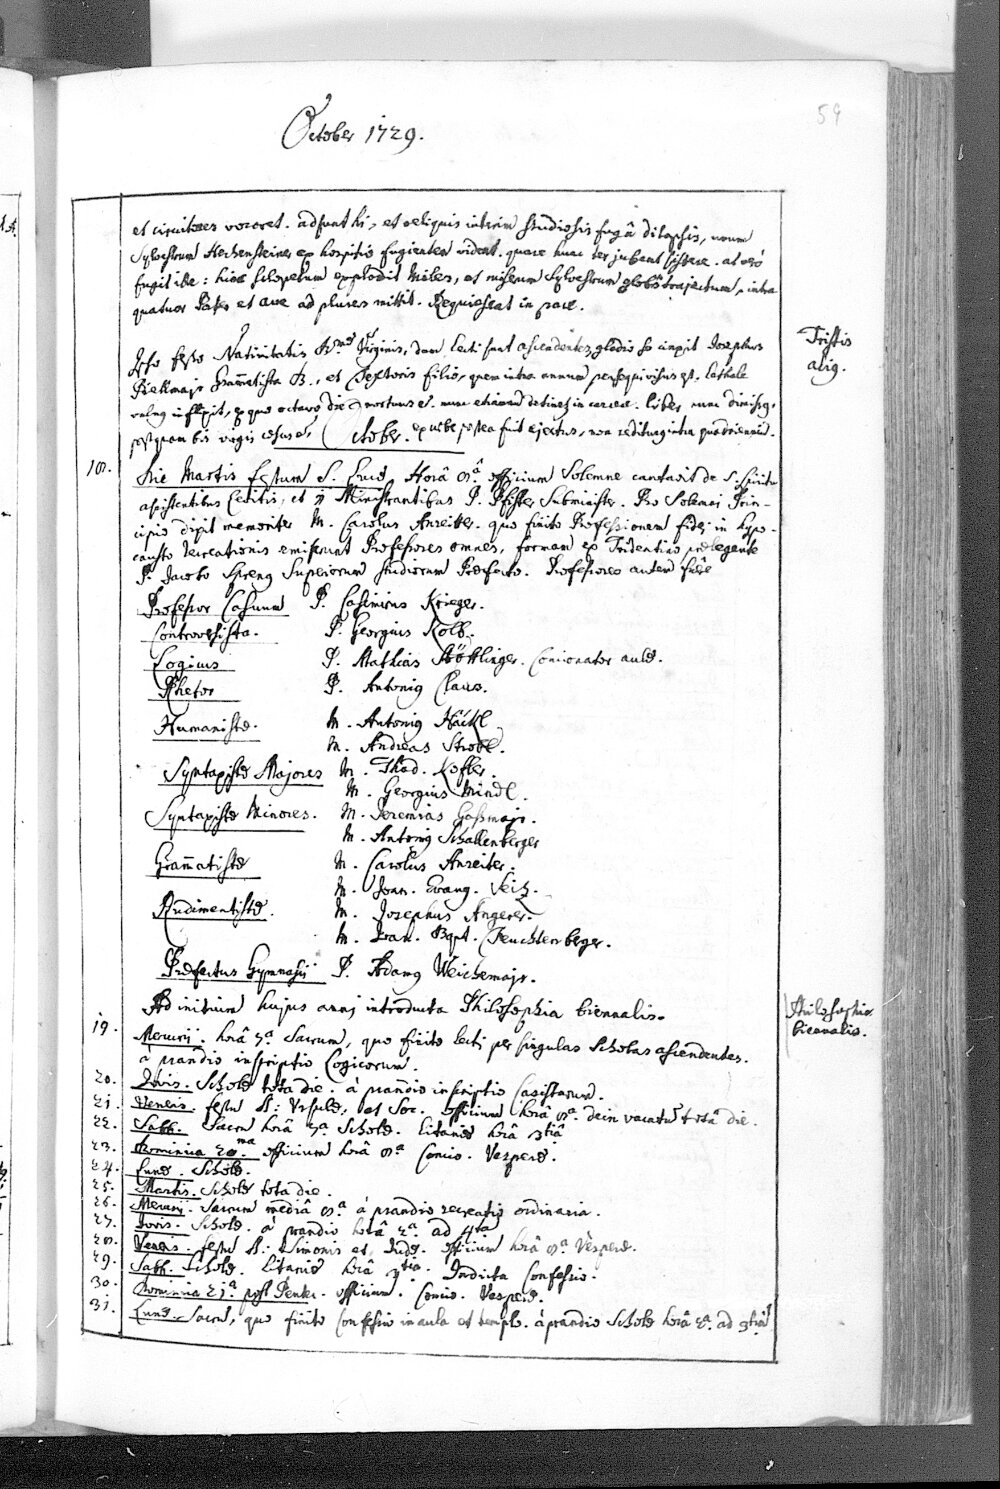 59
October 1729.
et circuitores vocaret. adsunt hi, et reliquis interim studiosis fugâ dilapsis, unum
Sylvestrum Heckensteiner ex hospitio fugientem vident. quare hunc ter jubent sistere. at vero
fugit ille: hinc sclopetum explodit Miles, et miserum Sylvestrum globo trajectum, intra
quatuor Pater et ave ad plures mittit. Requiescat in pace.
Ipso festo Nativitatis B. Virginis, dum lecti sunt ascendentes, gladio se cinxit Josephus
Riellmayr Grammatista B., et Textoris filio, quem intra annum persequi visus est, lethale
vulnus inflixit, ex quo octavo die mortuus e. nunc etiamnum detinetur in carcere. liber nunc dimissus,
postquam bis virgis caesus e, ex urbe postea fuit ejectus, non rediturus intra quadriennium.
Tristis
alig.
October.
18. Die Martis festum S. Lucae Horâ 8.â officium Solemne cantavit de S. Spiritu
assistentibus Ceteris, et Ministrantibus P. Pfister Subminister. Pro Solemni Prin-
cipio dixit memoriter M. Carolus Anreitter. quo finito Professionem fidei in hypo-
causto recreationis emiserunt Professores omnes, formam ex Tridentino praelegente
P. Jacobo Spreng Superiorum studiorum Praefecto. Professores autem fuere
Professor Casuum P. Casimirus Krieger.
Controversista. P. Georgius Kolb.
Logicus P. Mathias Stöttlinger. Concionator aulae.
Rhetor P. Antonius Claus.
Humanistae. M. Antonius Häckl
M. Andreas Strobl.
Syntaxistae Majores M. Thad. Kofler.
M. Georgius Mindl.
Syntaxistae Minores. M. Jeremias Gassmayr.
M. Antonius Schallenberger
Grammatistae M. Carolus Anreiter.
M. Joan. Evang. Veitz.
Rudimentistae. M. Josephus Angerer.
M. Joan. Bapt. Feuchtenberger.
Praefectus Gymnasii P. Adamus Weichemayr.
Ad initium hujus anni introducta Philosophia biennalis.
Philosophia
biennalis.
19. Mercurij. horâ 7.a Sacrum, quo finito lecti per singulas Scholas ascendentes.
à prandio inscriptio Logicorum.
20. Jovis. Scholae tota die. à prandio inscriptio Casistarum.
21. Veneris. festum S: Ursulae, et Soc. officium horâ 8.a dein vacatum totâ die.
22. Sabb. Sacrum horâ 7.a Scholae. Litaniae horâ 3tiâ
23. Dominica 20.ma officium horâ 8.a Concio. Vesperae.
24. Lunae. Scholae.
25. Martis. Scholae tota die.
26. Mercurij. Sacrum mediâ 8.a à prandio recreatio ordinaria.
27. Jovis. Scholae. à prandio horâ 2.a ad 4ta
28. Veneris. festum SS: Simonis et Judae. officium horâ 8.a Vesperae.
29. Sabb. Scholae. Litaniae horâ 3tia. Indicta Confessio.
30. Dominica 21.a post Pentec. officium. Concio. Vesperae.
31. Lunae. Sacrum, quo finito Confessio in aula et templo. à prandio Scholae horâ 2.a ad 3tiam